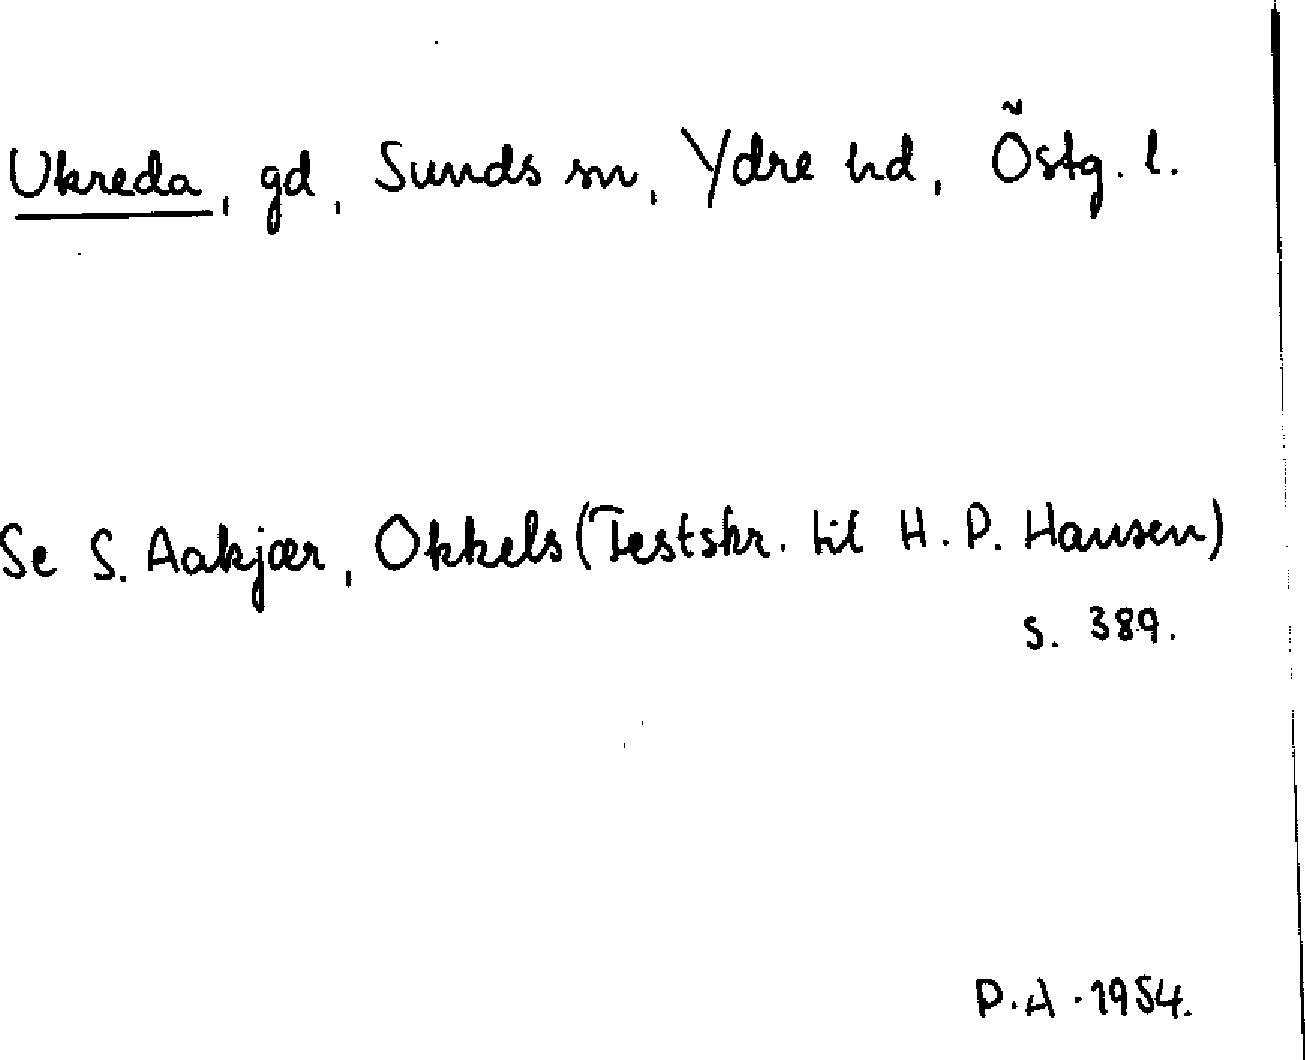 Ukreda, gd, Sunds sn, Ydre hd, Östg. l.
Se S. Aakjær, Okkels (Festskr. til H. P. Hansen)
s. 389.
P.A. 1954.